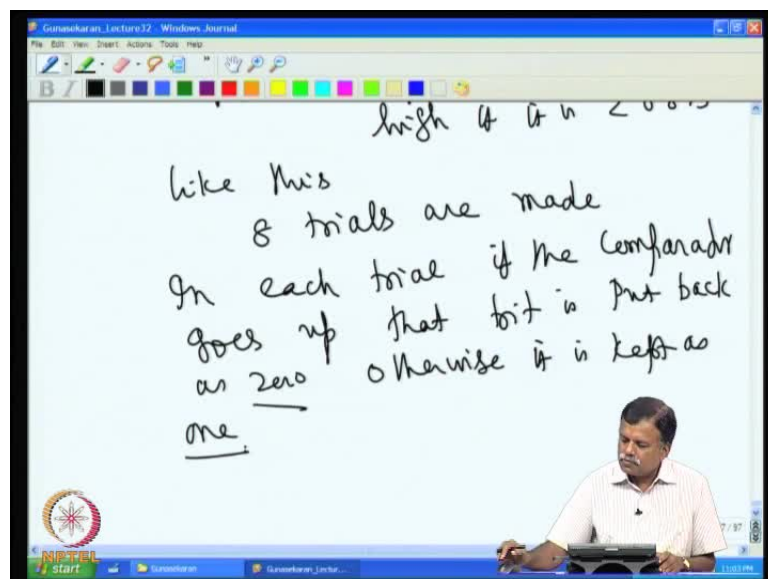 Gunasekaran_Lecture32 - Windows Journal
File Edit View Insert Actions Tools Help
B I
high if it is
like this
8 trials are made
In each trial if the comparador
goes up that bit is put back
as zero otherwise it is kept as
one.
NPTEL
start Gunasekaran Gunasekaran_Lectur... 11:03 PM